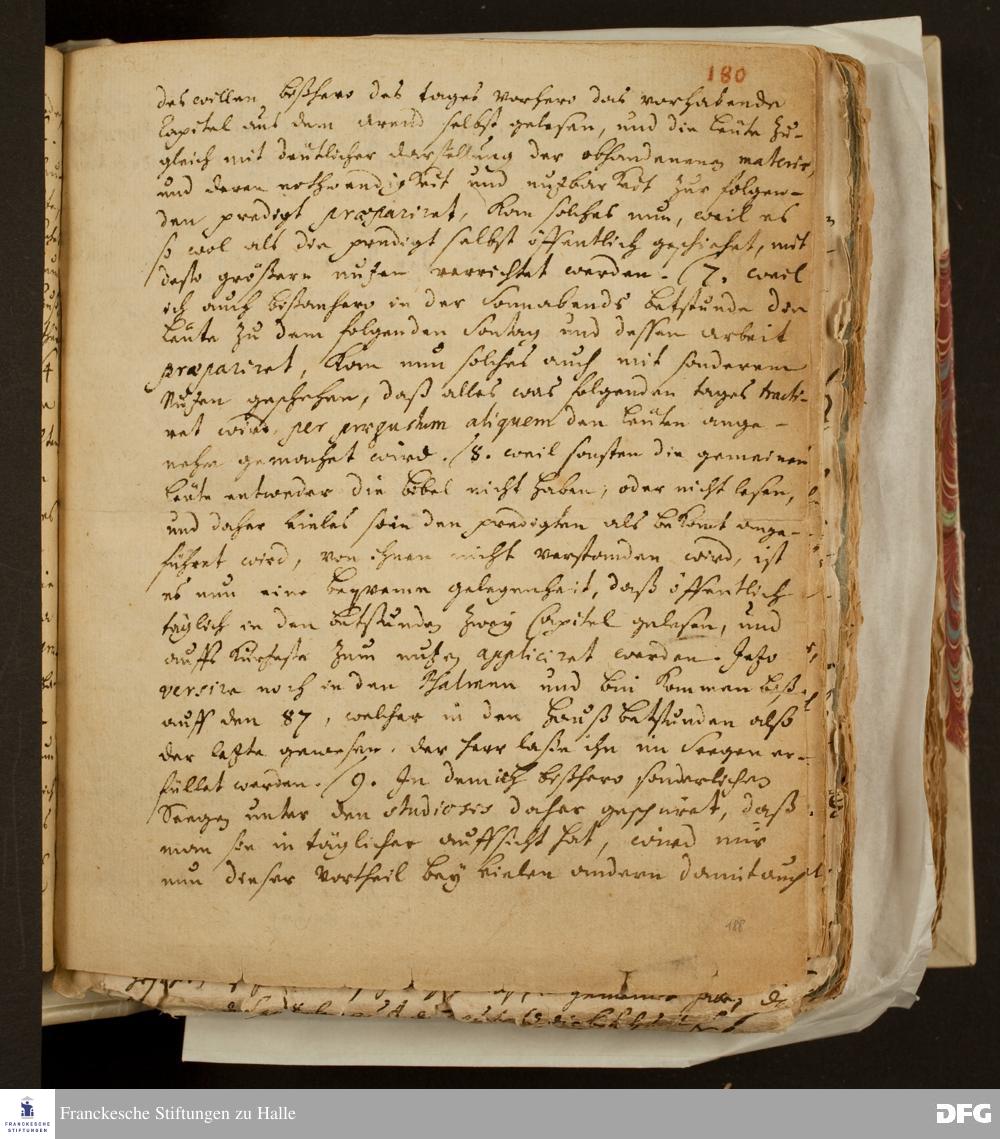 180
deswillen bißhero des tages vorhero das vorhabende
Capitel aus dem Arend selbst gelesen, und die leute zu-
gleich mit deutlicher darstellung der obhandenenen materie,
und deren nothwendigkeit und nutzbarkeit zur folgen-
den predigt præpariret, kan solches nun, weil es
so wol als die predigt selbst öffentlich geschiehet, mit
desto größern nutzen verrichtet werden. /7. weil
ich auch bißanhero in der Sonnabends betstunde die
leute zu dem folgenden Sontag und dessen arbeit
præpariret, kan nun solches auch mit sonderem
Nutzen geschehen, daß alles was folgenden tages tracti-
ret wird, per prægustum aliquem den leuten ange-
nehm gemachet wird. /8. weil sonsten die gemeinen
leute entweder die bibel nicht haben, oder nicht lesen,
und daher vieles so in den predigten als bekant ange-
führet wird, von ihnen nicht verstanden wird, ist
es nun eine beqveme gelegenheit, daß öffentlich
täglich in den betstunden zwey Capitel gelesen, und
auffs kürtzeste zum nutzen appliciret werden. Jetzo
versire noch in den Psalmen und bin kommen biß
auff den 87, welcher in den haußbetstunden also
der letzte gewesen. der herr laße ihn im Seegen er-
füllet werden. /9. In dem ich bißhero sonderlichen
Seegen unter den studiosis daher gespüret, daß
man sie in täglicher auffsicht hat, wird mir
nun dieser vortheil bey vielen andern damit auch
188
Franckesche Stiftungen zu Halle
FRANCKESCHE
STIFTUNGEN
DFG